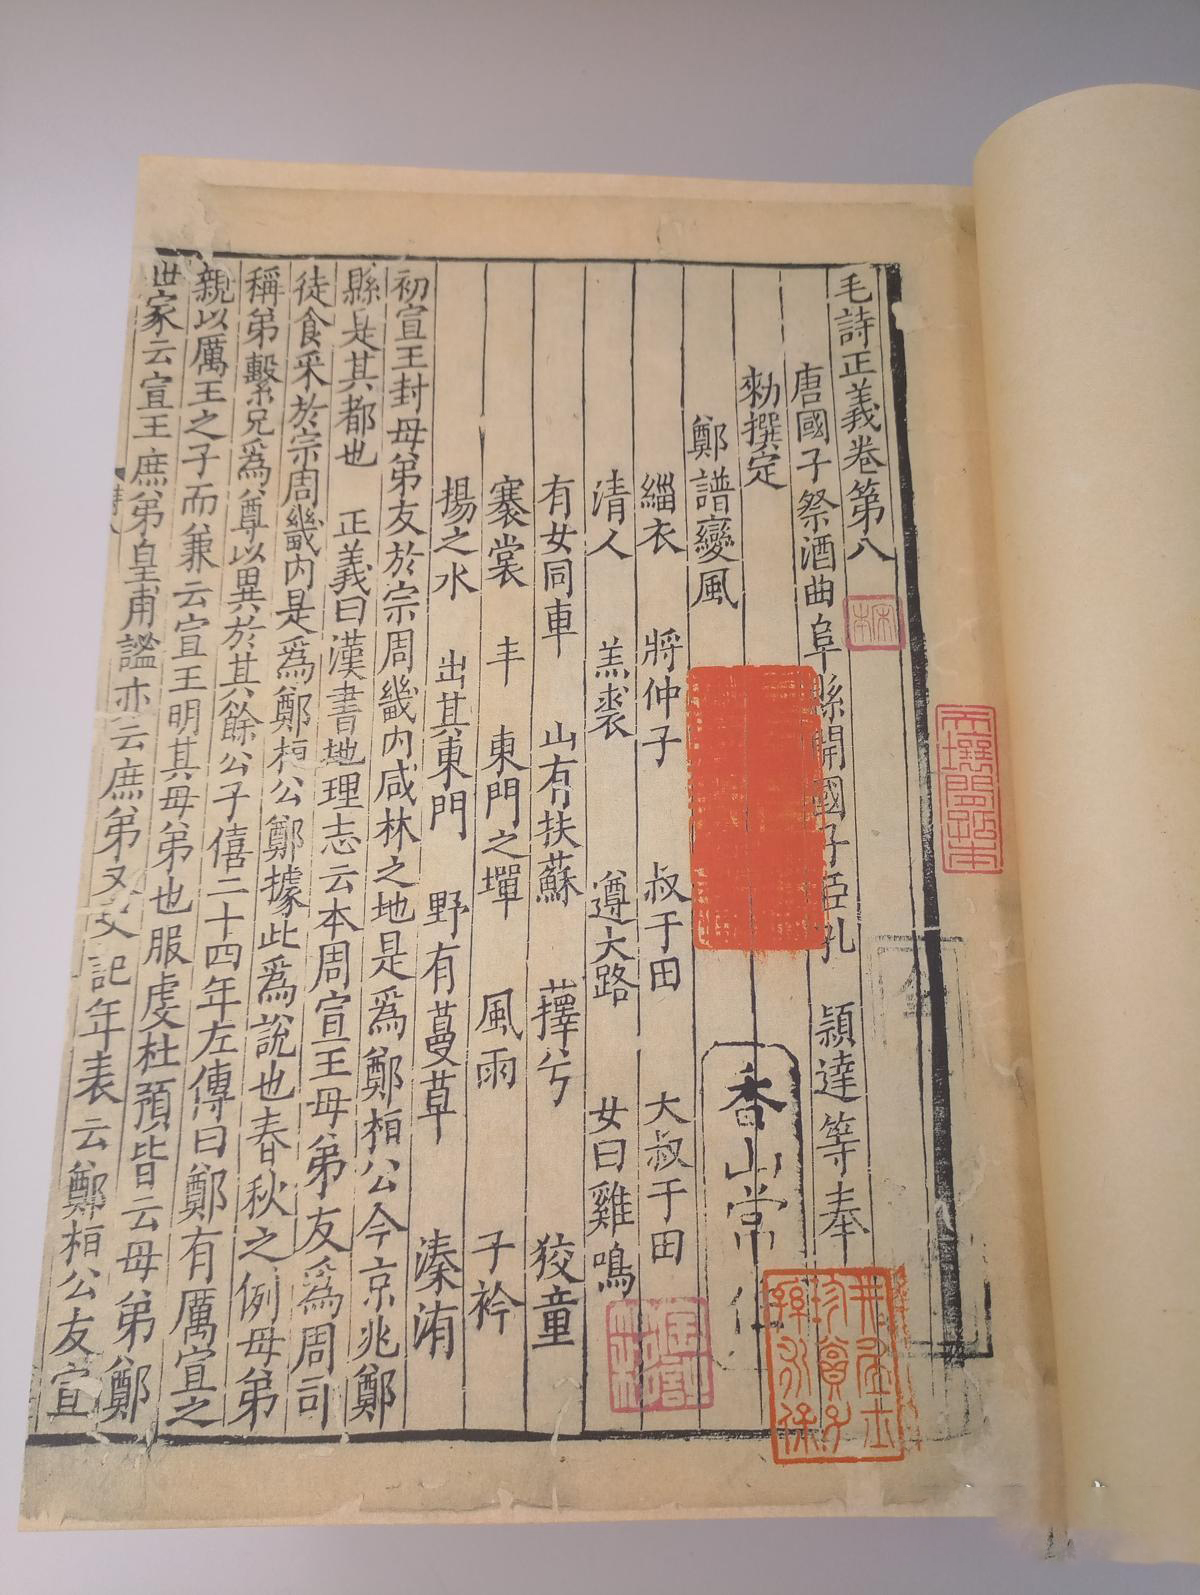 毛詩正義卷第八
唐國子祭酒曲阜縣開國子臣孔 穎達等奉
勑撰定
鄭譜變風
緇衣 將仲子 叔于田 大叔于田
清人 羔裘 遵大路 女曰雞鳴
有女同車 山有扶蘇 蘀兮 狡童
褰裳 丰 東門之墠 風雨 子衿
揚之水 出其東門 野有蔓草 溱洧
初宣王封母弟友於宗周畿内咸林之地是爲鄭桓公今京兆鄭
縣是其都也 正義曰漢書地理志云本周宣王母弟友爲周司
徒食采於宗周畿内是爲鄭桓公鄭據此爲說也春秋之例母弟
稱弟繫兄爲尊以異於其餘公子僖二十四年左傳曰鄭有厲宣之
親以厲王之子而兼云宣王明其母弟也服虔杜預皆云母弟鄭
世家云宣王庶弟皇甫謐亦云庶弟又史記年表云鄭桓公友宣
宋本
香山常住
金澤
井井居士
珍賞子
孫永保